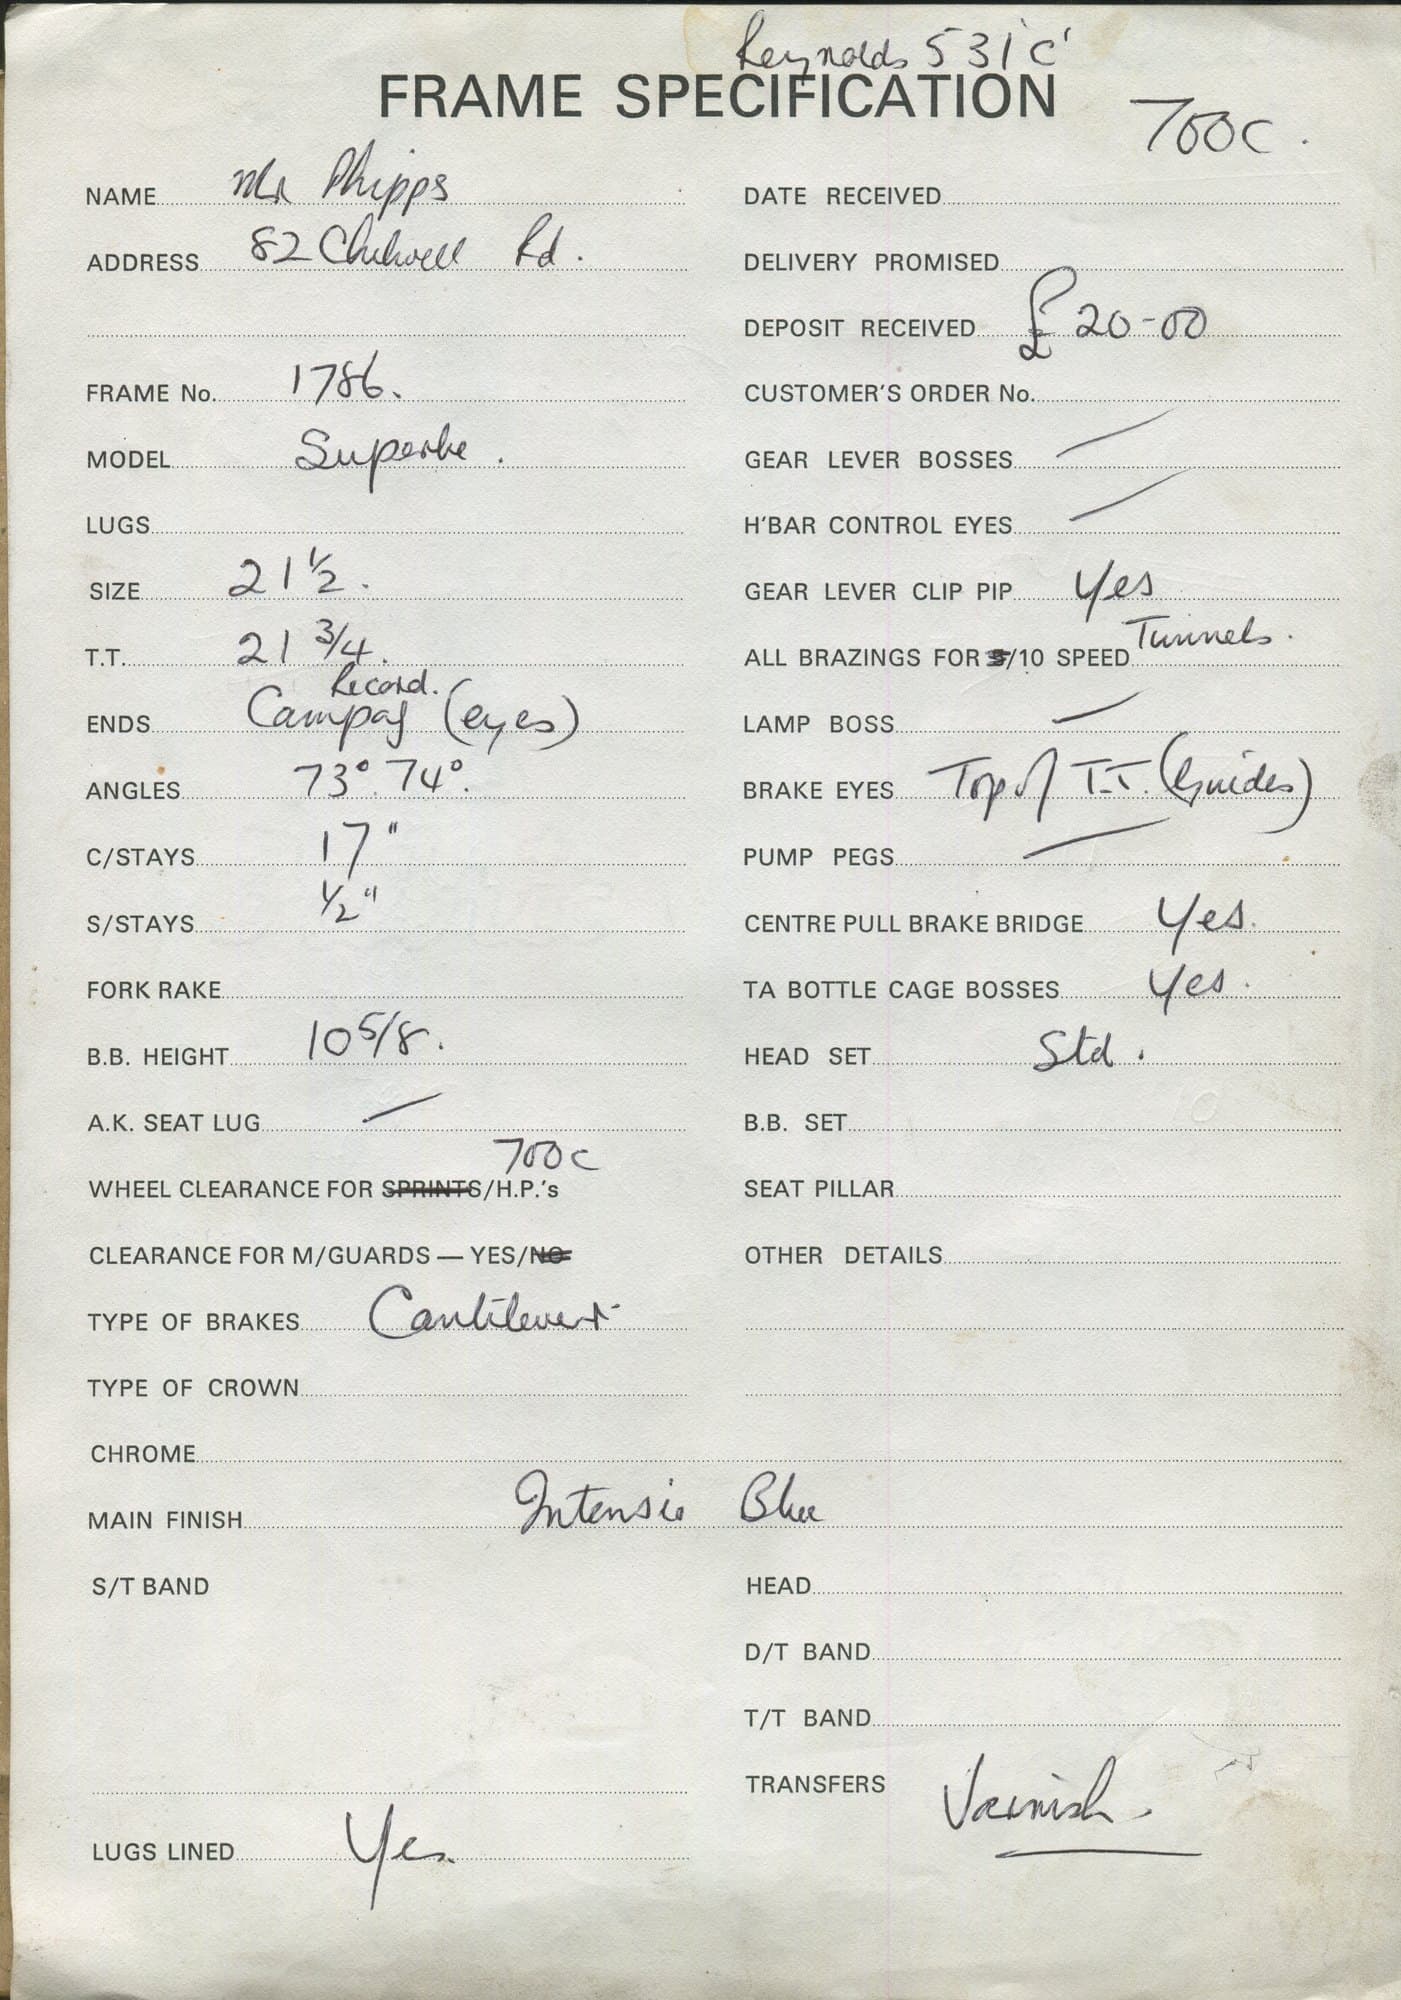 Reynolds 531 'C'
FRAME SPECIFICATION
700c.
NAME Mr Phipps
ADDRESS 82 Chilwell Rd.
FRAME No. 1786.
MODEL Superbe.
LUGS
SIZE 21 1/2.
T.T. 21 3/4.
Record.
ENDS Campag (eyes)
ANGLES 73° 74°.
C/STAYS 17"
S/STAYS 1/2"
FORK RAKE
B.B. HEIGHT 10 5/8.
A.K. SEAT LUG —
700c
WHEEL CLEARANCE FOR SPRINTS/H.P.'s
CLEARANCE FOR M/GUARDS — YES/NO
TYPE OF BRAKES Cantilever
TYPE OF CROWN
CHROME
MAIN FINISH Intensio Blue
S/T BAND
LUGS LINED Yes.
DATE RECEIVED
DELIVERY PROMISED
DEPOSIT RECEIVED £20-00
CUSTOMER'S ORDER No.
GEAR LEVER BOSSES —
H'BAR CONTROL EYES —
GEAR LEVER CLIP PIP Yes
ALL BRAZINGS FOR 5/10 SPEED Tunnels.
LAMP BOSS —
BRAKE EYES Top of T.T. (Guides)
PUMP PEGS —
CENTRE PULL BRAKE BRIDGE Yes.
TA BOTTLE CAGE BOSSES Yes.
HEAD SET Std.
B.B. SET
SEAT PILLAR
OTHER DETAILS
HEAD
D/T BAND
T/T BAND
TRANSFERS Varnish.